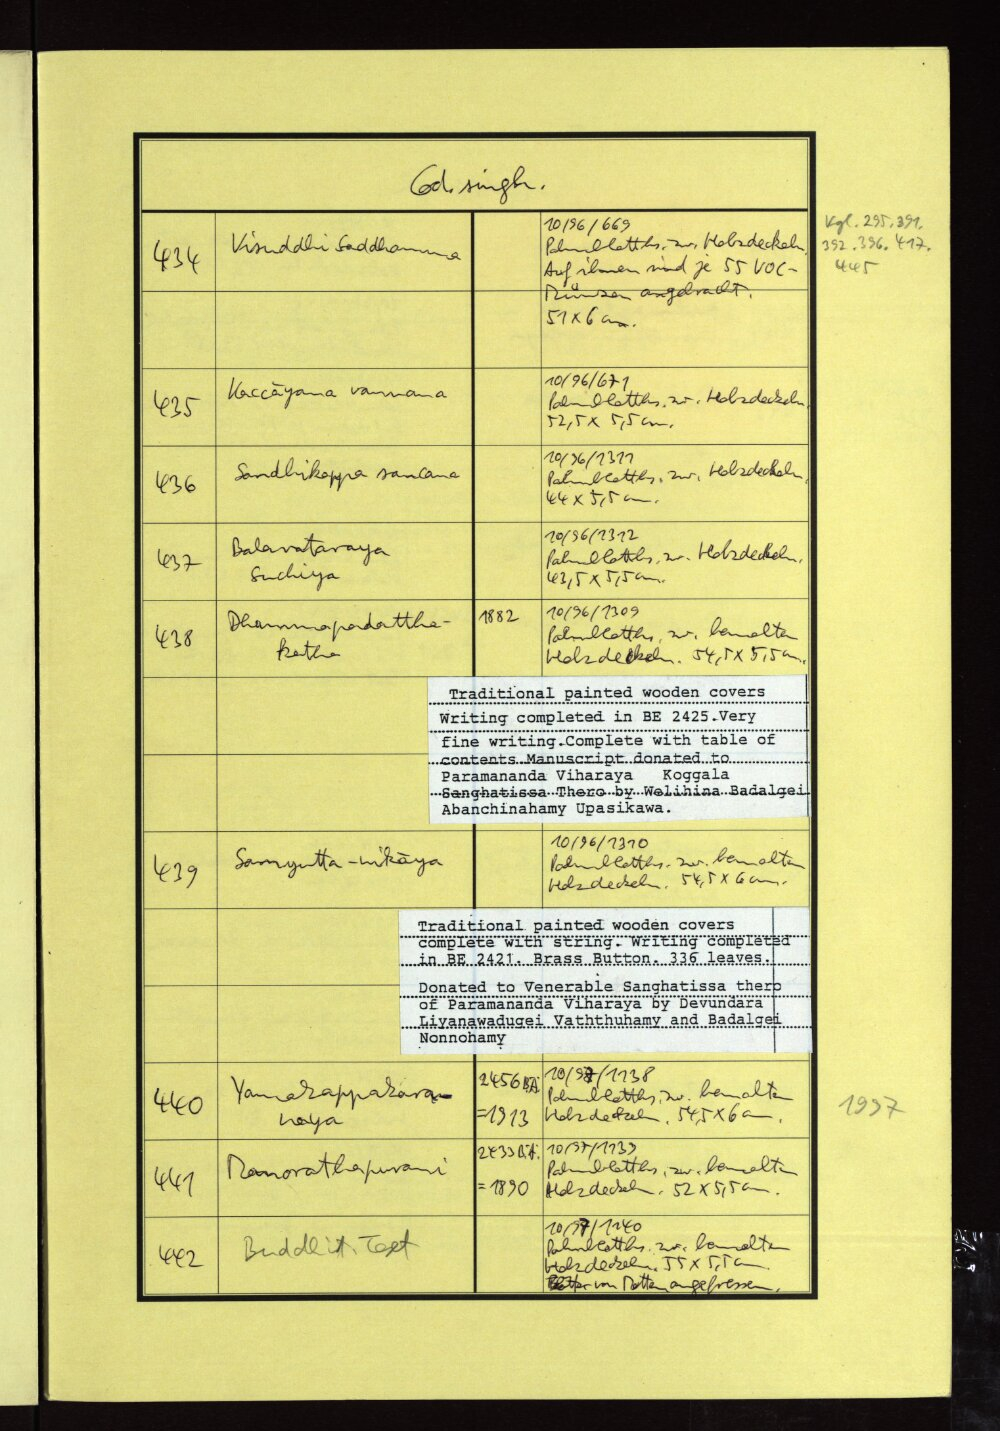 Cod. singh.
434
Visuddhi Saddhamma
10/96/669
Palmblatths. zw. Holzdeckeln.
Auf ihnen sind je 55 VOC-
Münzen angebracht.
51 x 6 cm.
Vgl. 295. 391.
392. 396. 417.
445
435
Kaccāyana vannana
10/96/671
Palmblatths. zw. Holzdeckeln.
52,5 x 5,5 cm.
436
Sandhikappa sancana
10/96/1311
Palmblatths. zw. Holzdeckeln.
44 x 5,5 cm.
437
Balavataraya
Suchiya
10/96/1312
Palmblatths. zw. Holzdeckeln.
43,5 x 5,5 cm.
438
Dhammapadattha-
katha
1882
10/96/1309
Palmblatths. zw. bemalten
Holzdeckeln. 54,5 x 5,5 cm.
Traditional painted wooden covers
Writing completed in BE 2425.Very
fine writing.Complete with table of
contents Manuscript donated to
Paramananda Viharaya Koggala
Sanghatissa Thero by Welihina Badalgei
Abanchinahamy Upasikawa.
439
Samyutta-nikāya
10/96/1310
Palmblatths. zw. bemalten
Holzdeckeln. 54,5 x 6 cm.
Traditional painted wooden covers
complete with string. Writing completed
in BE 2421. Brass Button. 336 leaves.
Donated to Venerable Sanghatissa thero
of Paramananda Viharaya by Devundara
Liyanawadugei Vaththuhamy and Badalgei
Nonnohamy
440
Yamakappakara-
naya
2456 B.Ä.
=1913
10/97/1138
Palmblatths. zw. bemalten
Holzdeckeln. 54,5 x 6 cm.
1997
441
Manorathapurani
2433 B.Ä.
=1890
10/97/1139
Palmblatths. zw. bemalten
Holzdeckeln. 52 x 5,5 cm.
442
Buddhist. Text
10/97/1140
Palmblatths. zw. bemalten
Holzdeckeln. 55 x 5,5 cm.
Blätter von Motten angefressen.